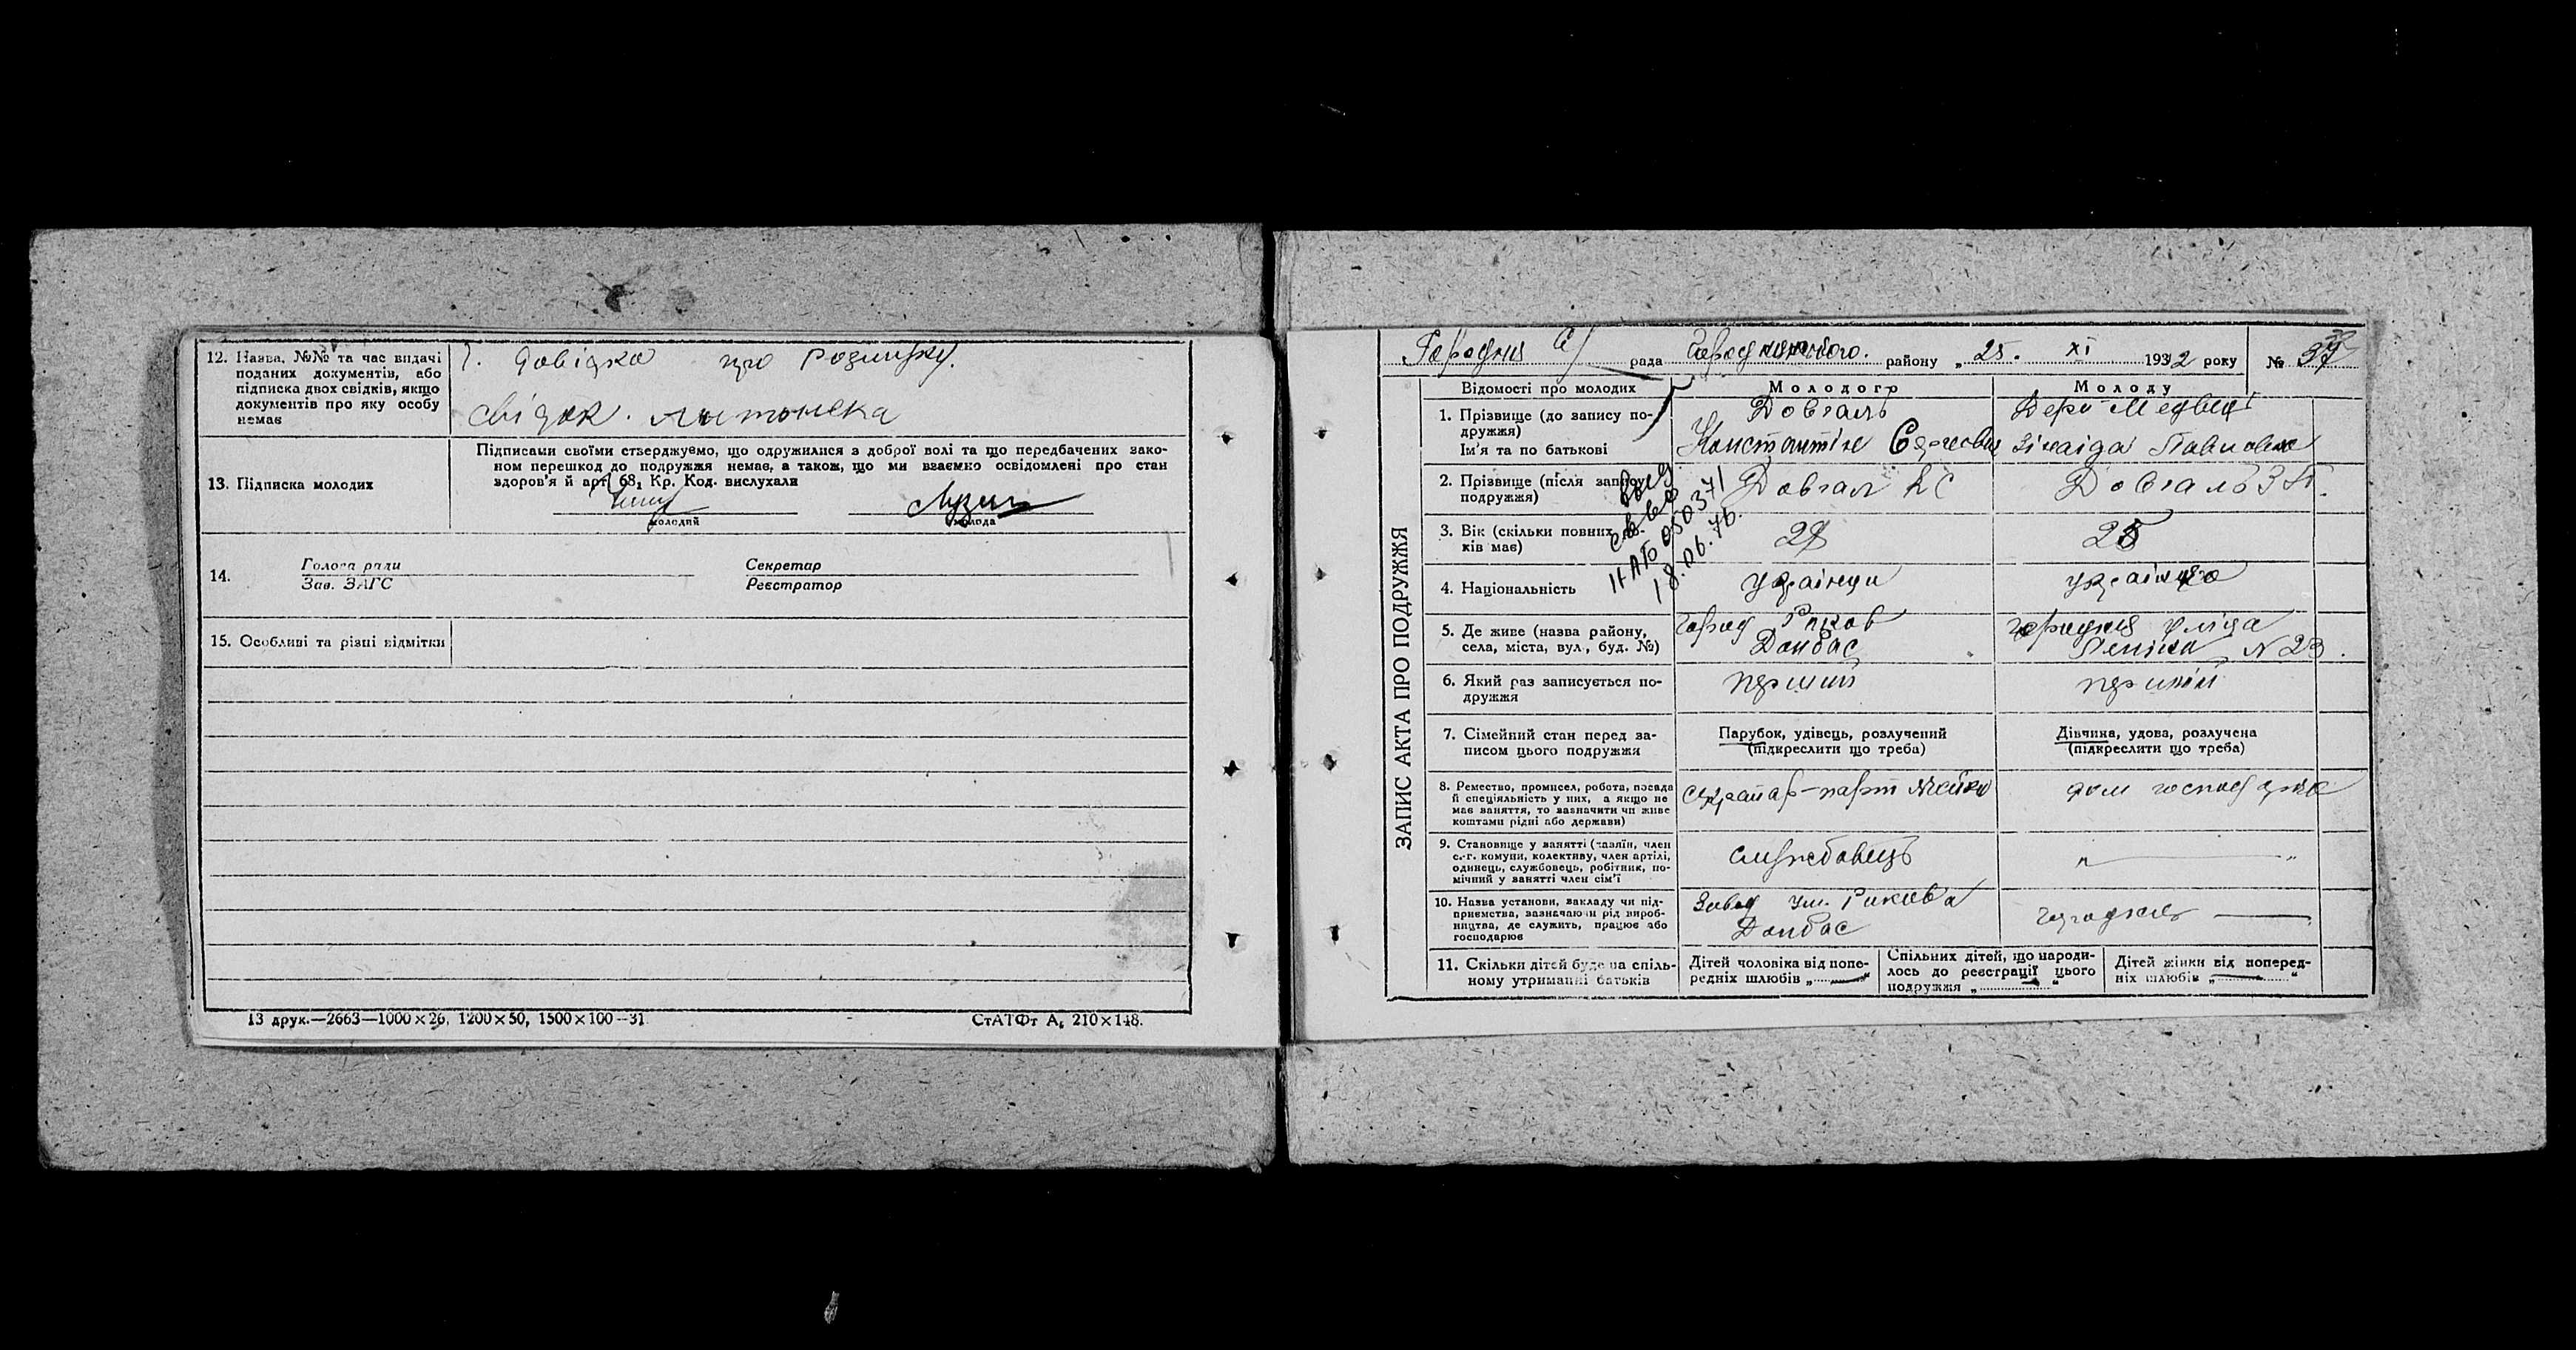 12. Назва, №№ та час видачі
поданих документів, або
підписка двох свідків, якщо
документів про яку особу
немає
1. Довідка про
свідок.
13. Підписка молодих
Підписами своїми стверджуємо, що одружилися з доброї волі та що передбачених зако-
ном перешкод до подружжя немає, а також, що ми взаємно освідомлені про стан
здоров'я й арт. 68, Кр. Код. вислухали
молодий
молода
14.
Голова ради
Зав. ЗАГС
Секретар
Реєстратор
15. Особливі та різні відмітки
13 друк.—2663—1000×26, 1200×50, 1500×100—31
СтАТФт А₅ 210×148.
ЗАПИС АКТА ПРО ПОДРУЖЖЯ
Городня рада району „ 25. XI 1932 року № 37
Відомості про молодих
Молодого
Молоду
1. Прізвище (до запису по-
дружжя)
Ім'я та по батькові
Довгаль
Константін
Зінаіда Павловна
2. Прізвище (після запису
подружжя)
Довгал К С
Довгаль З П.
НАГО 050371
18.06.76.
3. Вік (скільки повних ро-
ків має)
28
25
4. Національність
українци
українка
5. Де живе (назва району,
села, міста, вул., буд. №)
город Риков
Донбас
Городня уліца
Леніна N 23.
6. Який раз записується по-
дружжя
перший
перший
7. Сімейний стан перед за-
писом цього подружжя
Парубок, удівець, розлучений
(підкреслити що треба)
Дівчина, удова, розлучена
(підкреслити що треба)
8. Ремество, промисел, робота, посада
й спеціяльність у них, а якщо не
має заняття, то зазначити чи живе
коштами рідні або держави)
секретар-парт
дом господарка
9. Становище у занятті (хазяїн, член
с.-г. комуни, колективу, член артілі,
одинець, службовець, робітник, по-
мічний у занятті член сім'ї
службовець
„ „
10. Назва установи, закладу чи під-
приємства, зазначаючи рід вироб-
ництва, де служить, працює або
господарює
Завод им. Рикова
Донбас
11. Скільки дітей буде на спіль-
ному утриманні батьків
Дітей чоловіка від попе-
редніх шлюбів „ — “
Спільних дітей, що народи-
лось до реєстрації цього
подружжя „ — “
Дітей жінки від поперед-
ніх шлюбів „ — “